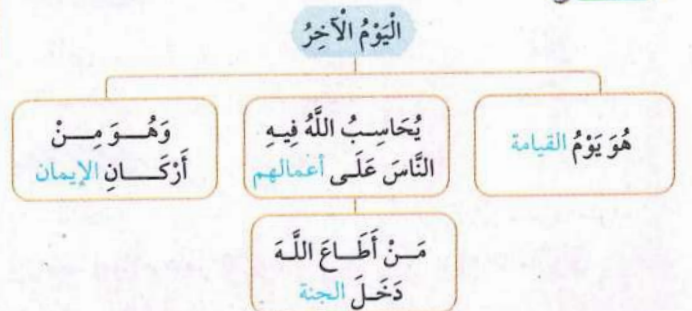 الْيَوْمُ الْآخِرُ
هُوَ يَوْمُ القيامة
يُحَاسِبُ اللَّهُ فِيهِ
النَّاسَ عَلَى أعمالهم
وَهُوَ مِنْ
أَرْكَانِ الإيمان
مَنْ أَطَاعَ اللَّهَ
دَخَلَ الجنة